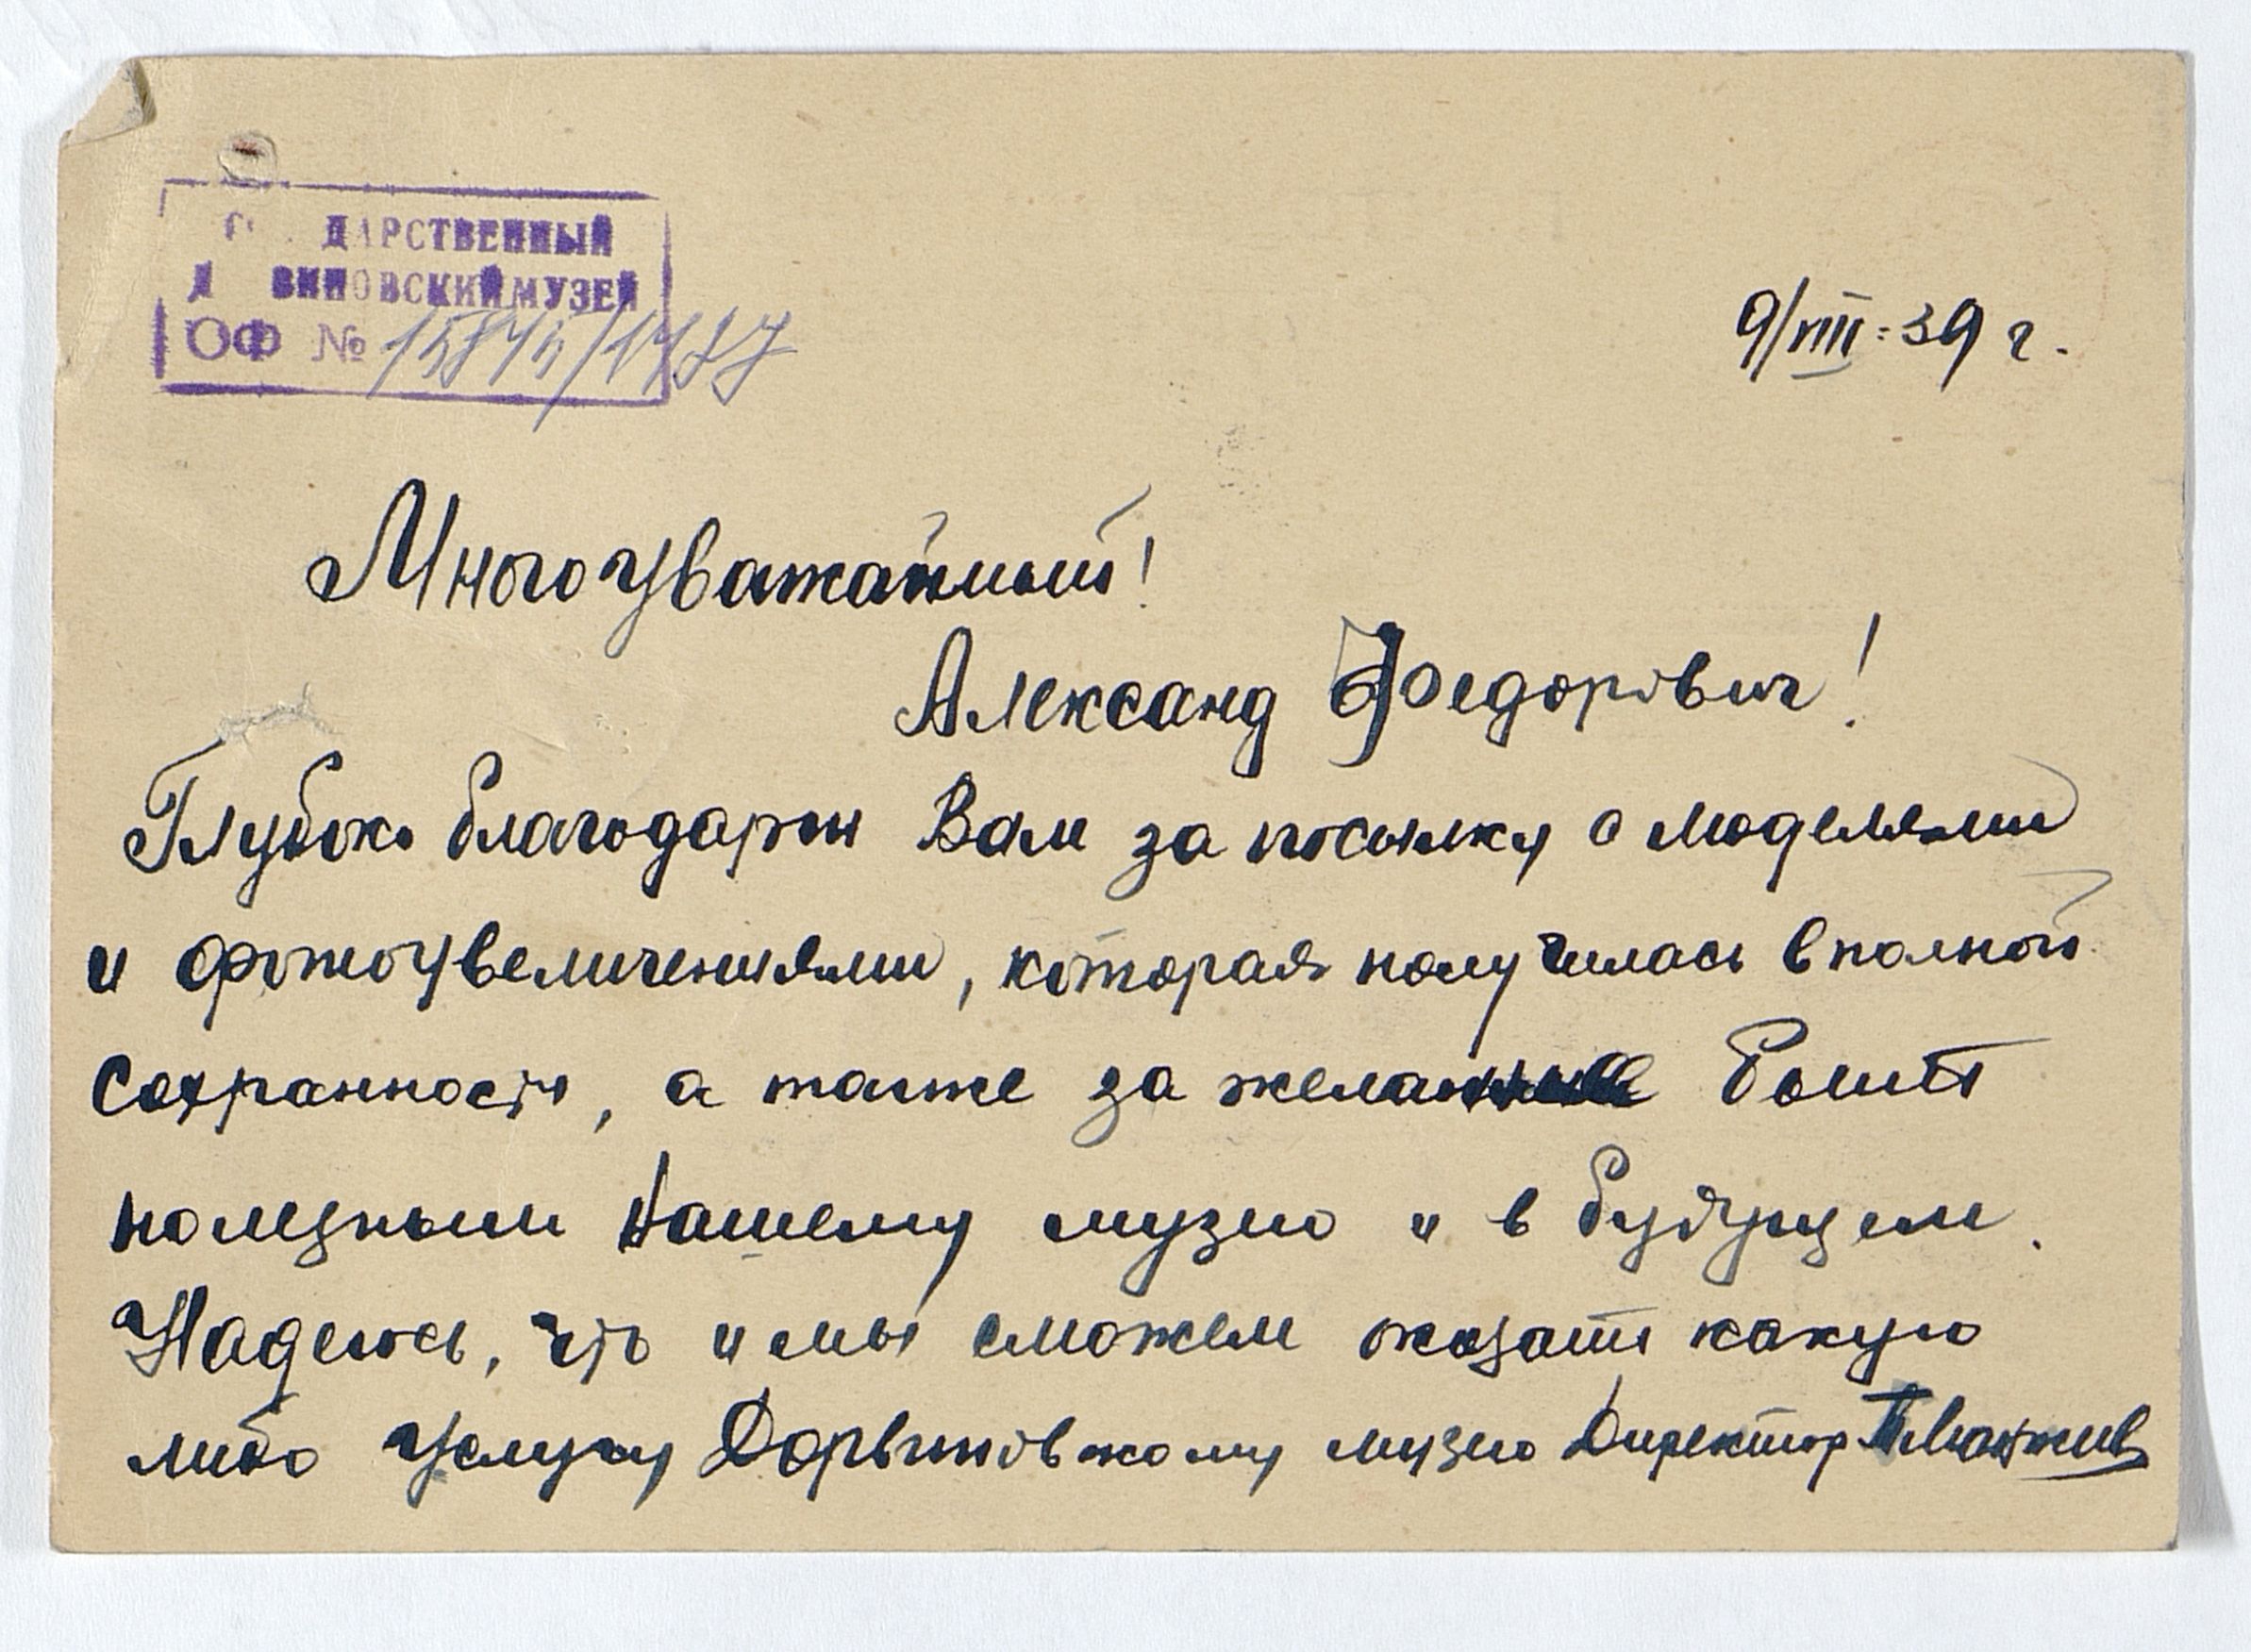 ДАРСТВЕННЫЙ
Д ВИНОВСКИЙ МУЗЕЙ
ОФ №
9/VIII-39 г.
Многоуважаймый!
Александ Федорович!
Глубоко благодарен Вам за посылку с моделями
и фотоувеличениями, которая получилась в полной
сохранности, а также за желание быть
полезным Нашему музею и в будущем.
Надеюсь, что и мы сможем оказать какую
либо услугу Дарвиновскому музею Директор